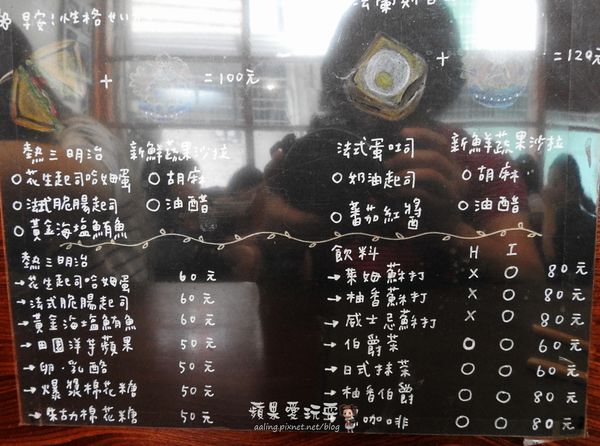 早安!性格
+ =100元
+ =120元
熱三明治
○花生起司哈姆蛋
○法式脆腸起司
○黃金海塩鮪魚
新鮮蔬果沙拉
○胡麻
○油醋
法式蛋吐司
○奶油起司
○蕃茄紅醬
新鮮蔬果沙拉
○胡麻
○油醋
熱三明治
→花生起司哈姆蛋 60元
→法式脆腸起司 60元
→黃金海塩鮪魚 60元
→田園洋芋蘋果 50元
→卵·乳酪 50元
→爆漿棉花糖 50元
→朱古力棉花糖 50元
飲料 H I
→萊姆蘇打 X ○ 80元
→柚香蘇打 X ○ 80元
→威士忌蘇打 X ○ 80元
→伯爵茶 ○ ○ 60元
→日式抹茶 ○ ○ 60元
→柚香伯爵 ○ ○ 80元
咖啡 ○ ○ 80元
蘋果愛玩耍
aaling.pixnet.net/blog